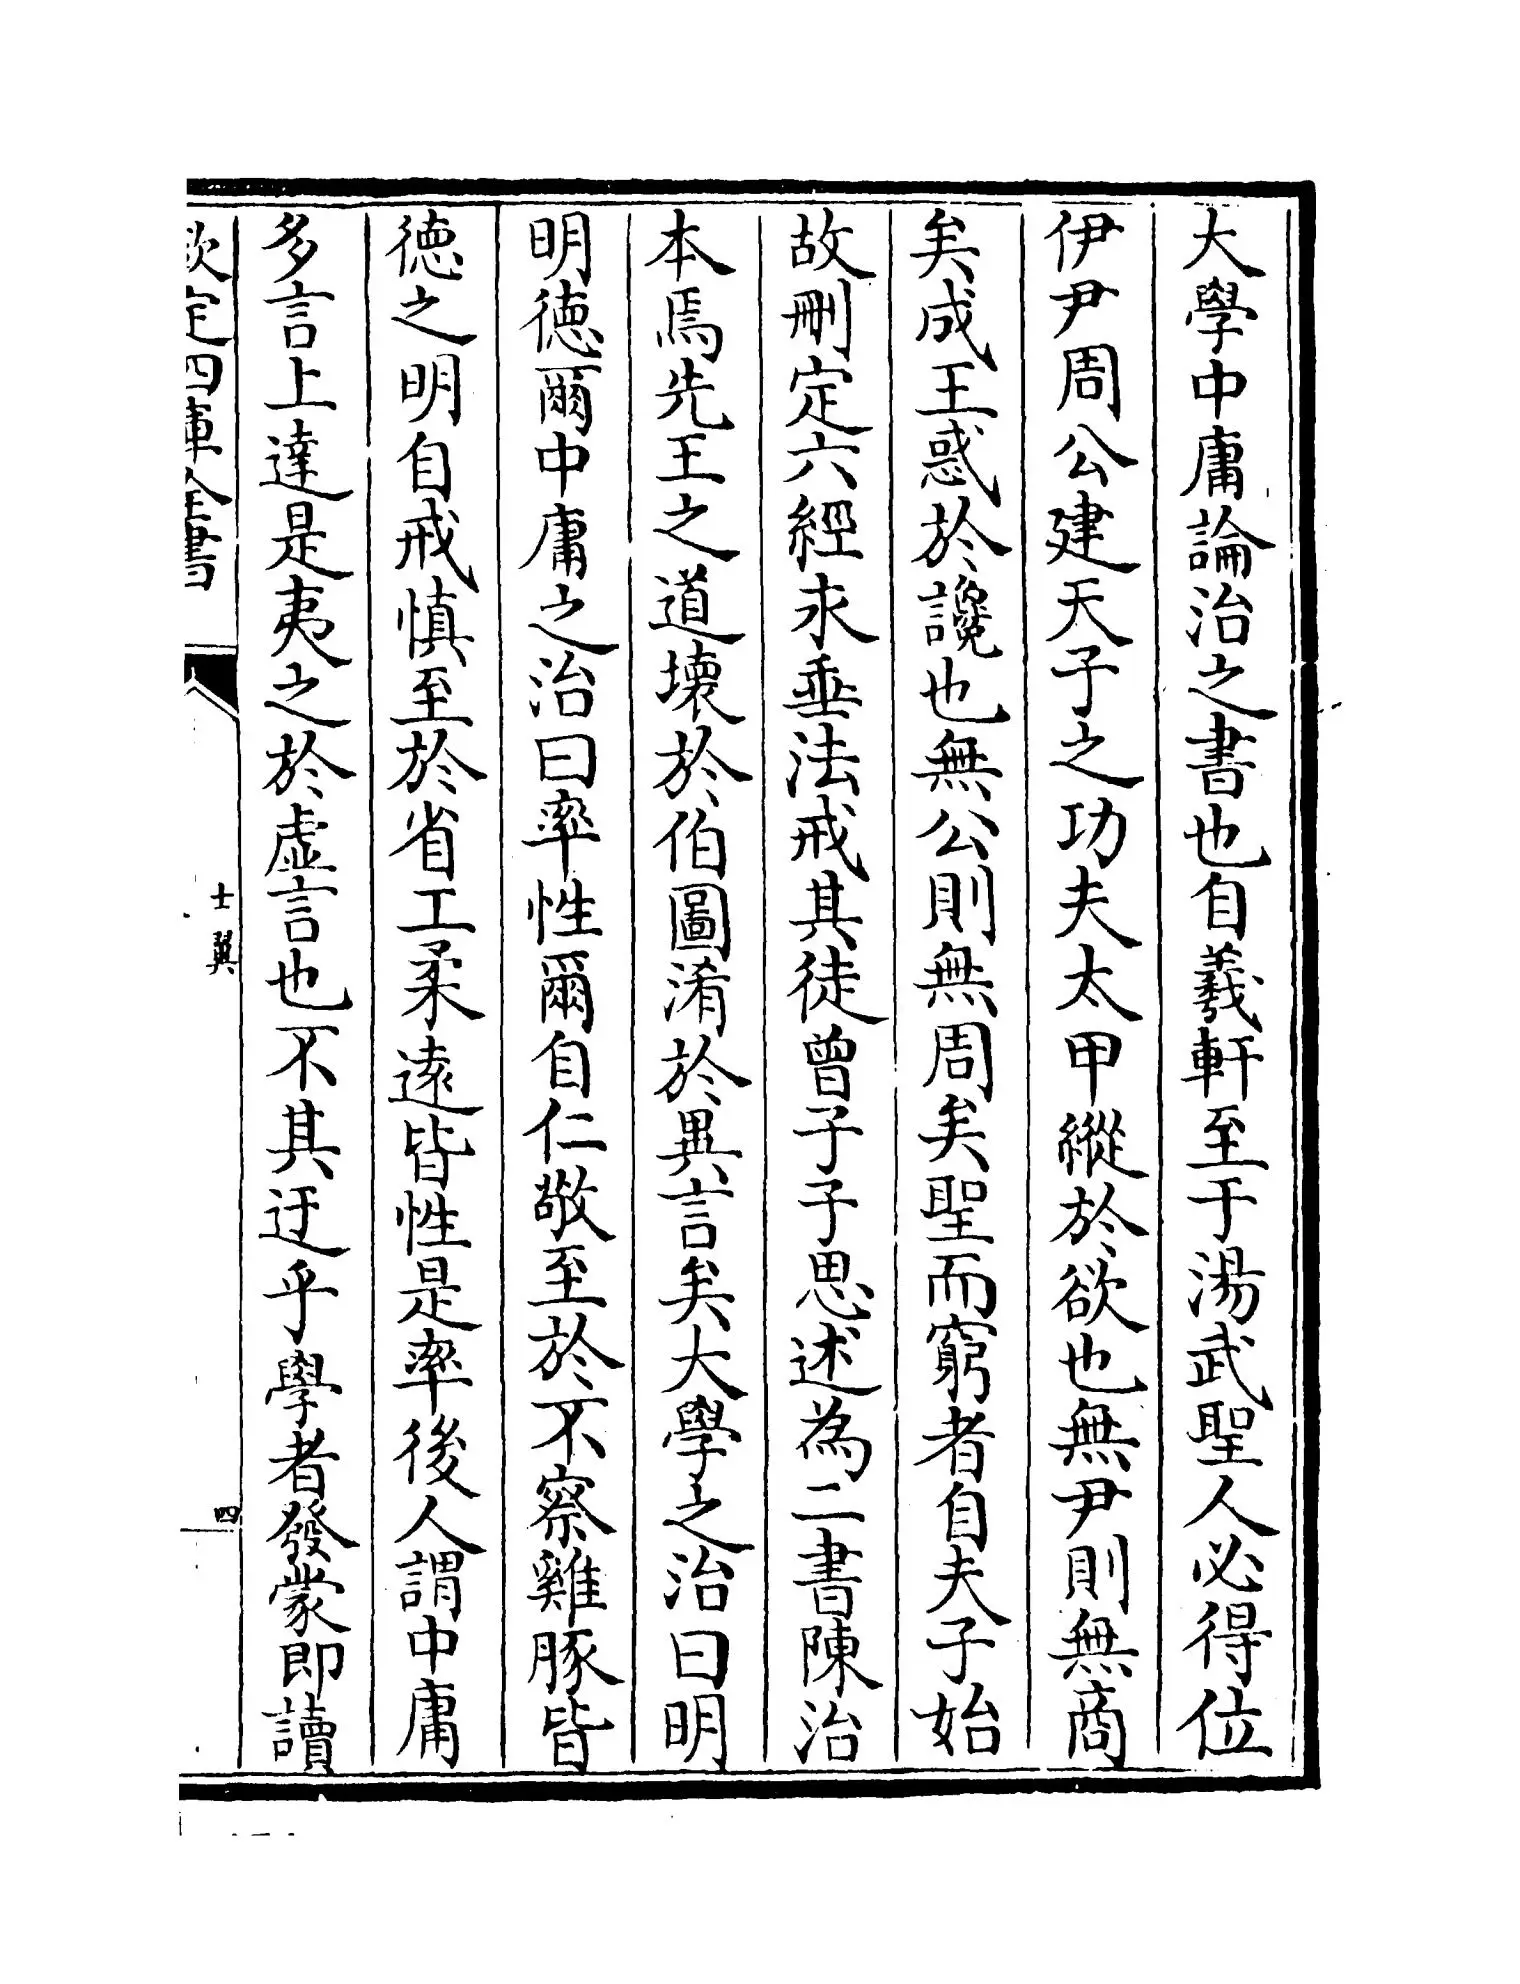 大學中庸論治之書也自羲軒至于湯武聖人必得位
伊尹周公建天子之功夫太甲縱於欲也無尹則無商
矣成王惑於讒也無公則無周矣聖而窮者自夫子始
故刪定六經求垂法戒其徒曾子子思述為二書陳治
本焉先王之道壞於伯圖淆於異言矣大學之治曰明
明德爾中庸之治曰率性爾自仁敬至於不察雞豚皆
德之明自戒慎至於省工柔遠皆性是率後人謂中庸
多言上達是夷之於虛言也不其迂乎學者發蒙即讀
欽定四庫全書
士翼
四